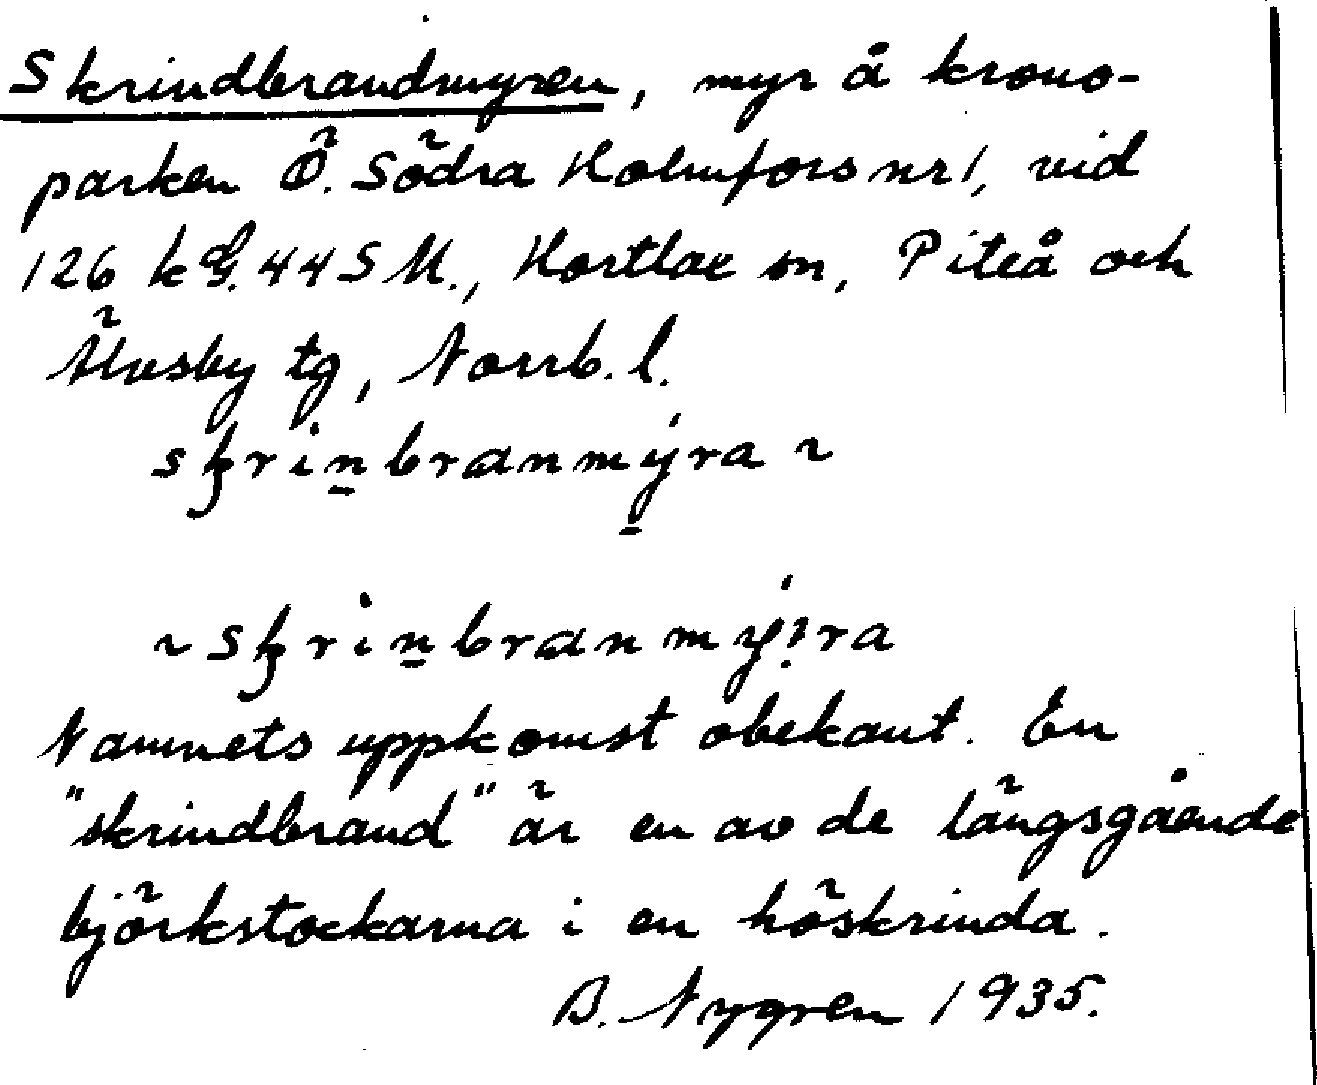 Skrindbrandmyren, myr å krono-
parken Ö. Södra Holmfors nr 1, vid
126 k G. 44 S M., Hortlax sn, Piteå och
Älvsby tg, Norrb. l.
skrinbranmyra ~
~ skrinbranmy:ra
Namnets uppkomst obekant. En
"skrindbrand" är en av de långsgående
björkstockarna i en höskrinda.
B. Nygren 1935.